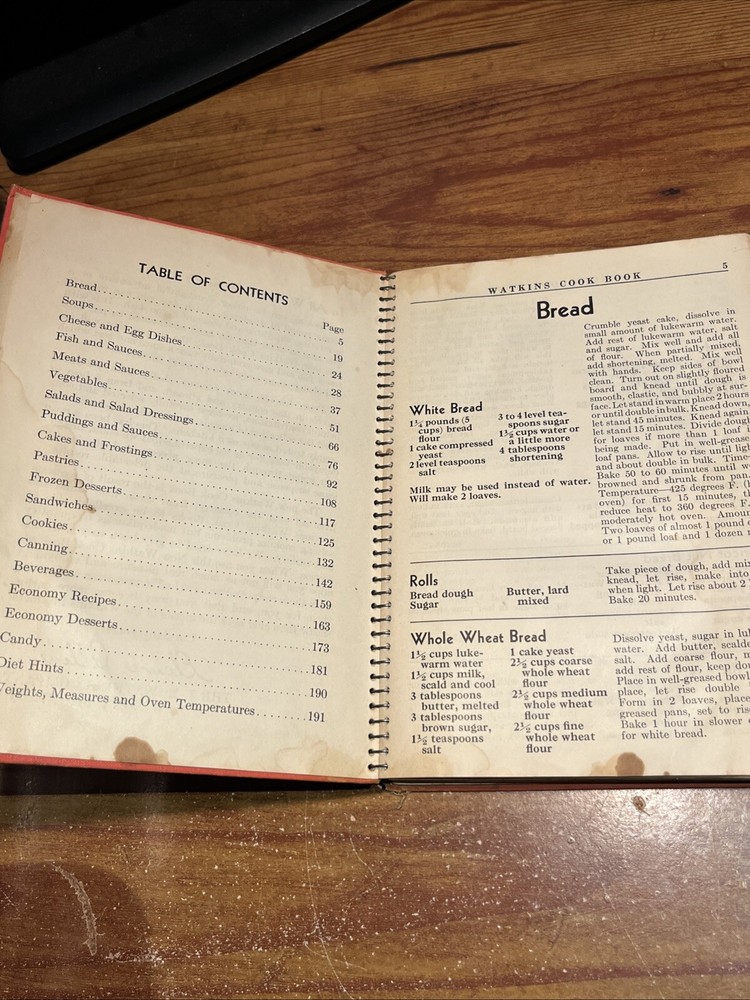 TABLE OF CONTENTS
Page
Bread 5
Soups 19
Cheese and Egg Dishes 24
Fish and Sauces 28
Meats and Sauces 37
Vegetables 51
Salads and Salad Dressings 66
Puddings and Sauces 76
Cakes and Frostings 92
Pastries 108
Frozen Desserts 117
Sandwiches 125
Cookies 132
Canning 142
Beverages 159
Economy Recipes 163
Economy Desserts 173
Candy 181
Diet Hints 190
Weights, Measures and Oven Temperatures 191
WATKINS COOK BOOK 5
Bread
White Bread
1½ pounds (5
cups) bread
flour
1 cake compressed
yeast
2 level teaspoons
salt
3 to 4 level tea-
spoons sugar
1½ cups water or
a little more
4 tablespoons
shortening
Milk may be used instead of water.
Will make 2 loaves.
Crumble yeast cake, dissolve in
small amount of lukewarm water.
Add rest of lukewarm water, salt
and sugar. Mix well and add all
of flour. When partially mixed,
add shortening, melted. Mix well
with hands. Keep sides of bowl
clean. Turn out on slightly floured
board and knead until dough is
smooth, elastic, and bubbly at sur-
face. Let stand in warm place 2 hours
or until double in bulk. Knead down,
let stand 45 minutes. Knead again
let stand 15 minutes. Divide dough
for loaves if more than 1 loaf
being made. Put in well-greased
loaf pans. Allow to rise until
and about double in bulk. Time—
Bake 50 to 60 minutes until
browned and shrunk from pan.
Temperature—425 degrees F. (
oven) for first 15 minutes,
reduce heat to 360 degrees F.
moderately hot oven.
Two loaves of almost 1 pound
or 1 pound loaf and 1 dozen
Rolls
Bread dough
Sugar
Butter, lard
mixed
Take piece of dough, add
knead, let rise, make into
when light. Let rise about 2
Bake 20 minutes.
Whole Wheat Bread
1½ cups luke-
warm water
1½ cups milk,
scald and cool
3 tablespoons
butter, melted
3 tablespoons
brown sugar,
1½ teaspoons
salt
1 cake yeast
2½ cups coarse
whole wheat
flour
2½ cups medium
whole wheat
flour
2½ cups fine
whole wheat
flour
Dissolve yeast, sugar in
water. Add butter,
salt. Add coarse flour,
add rest of flour, keep
Place in well-greased bowl
place, let rise double
Form in 2 loaves, place
greased pans, set to rise
Bake 1 hour in slower
for white bread.